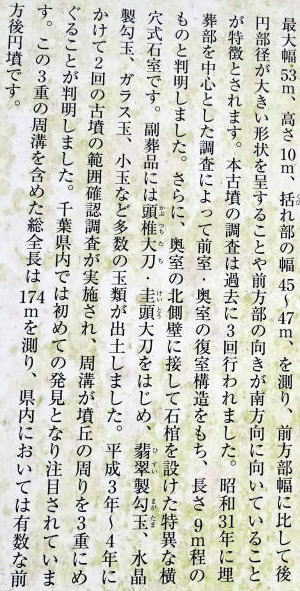 最大幅53m、高さ10m、括れ部の幅45〜47m、を測り、前方部幅に比して後
円部径が大きい形状を呈することや前方部の向きが南方向に向いていること
が特徴とされます。本古墳の調査は過去に3回行われました。昭和31年に埋
葬部を中心とした調査によって前室・奥室の復室構造をもち、長さ9m程の
ものと判明しました。さらに、奥室の北側壁に接して石棺を設けた特異な横
穴式石室です。副葬品には頭椎大刀・圭頭大刀をはじめ、翡翠製勾玉、水晶
製勾玉、ガラス玉、小玉など多数の玉類が出土しました。平成3年〜4年に
かけて2回の古墳の範囲確認調査が実施され、周溝が墳丘の周りを3重にめ
ぐることが判明しました。千葉県内では初めての発見となり注目されていま
す。この3重の周溝を含めた総全長は174mを測り、県内においては有数な前
方後円墳です。